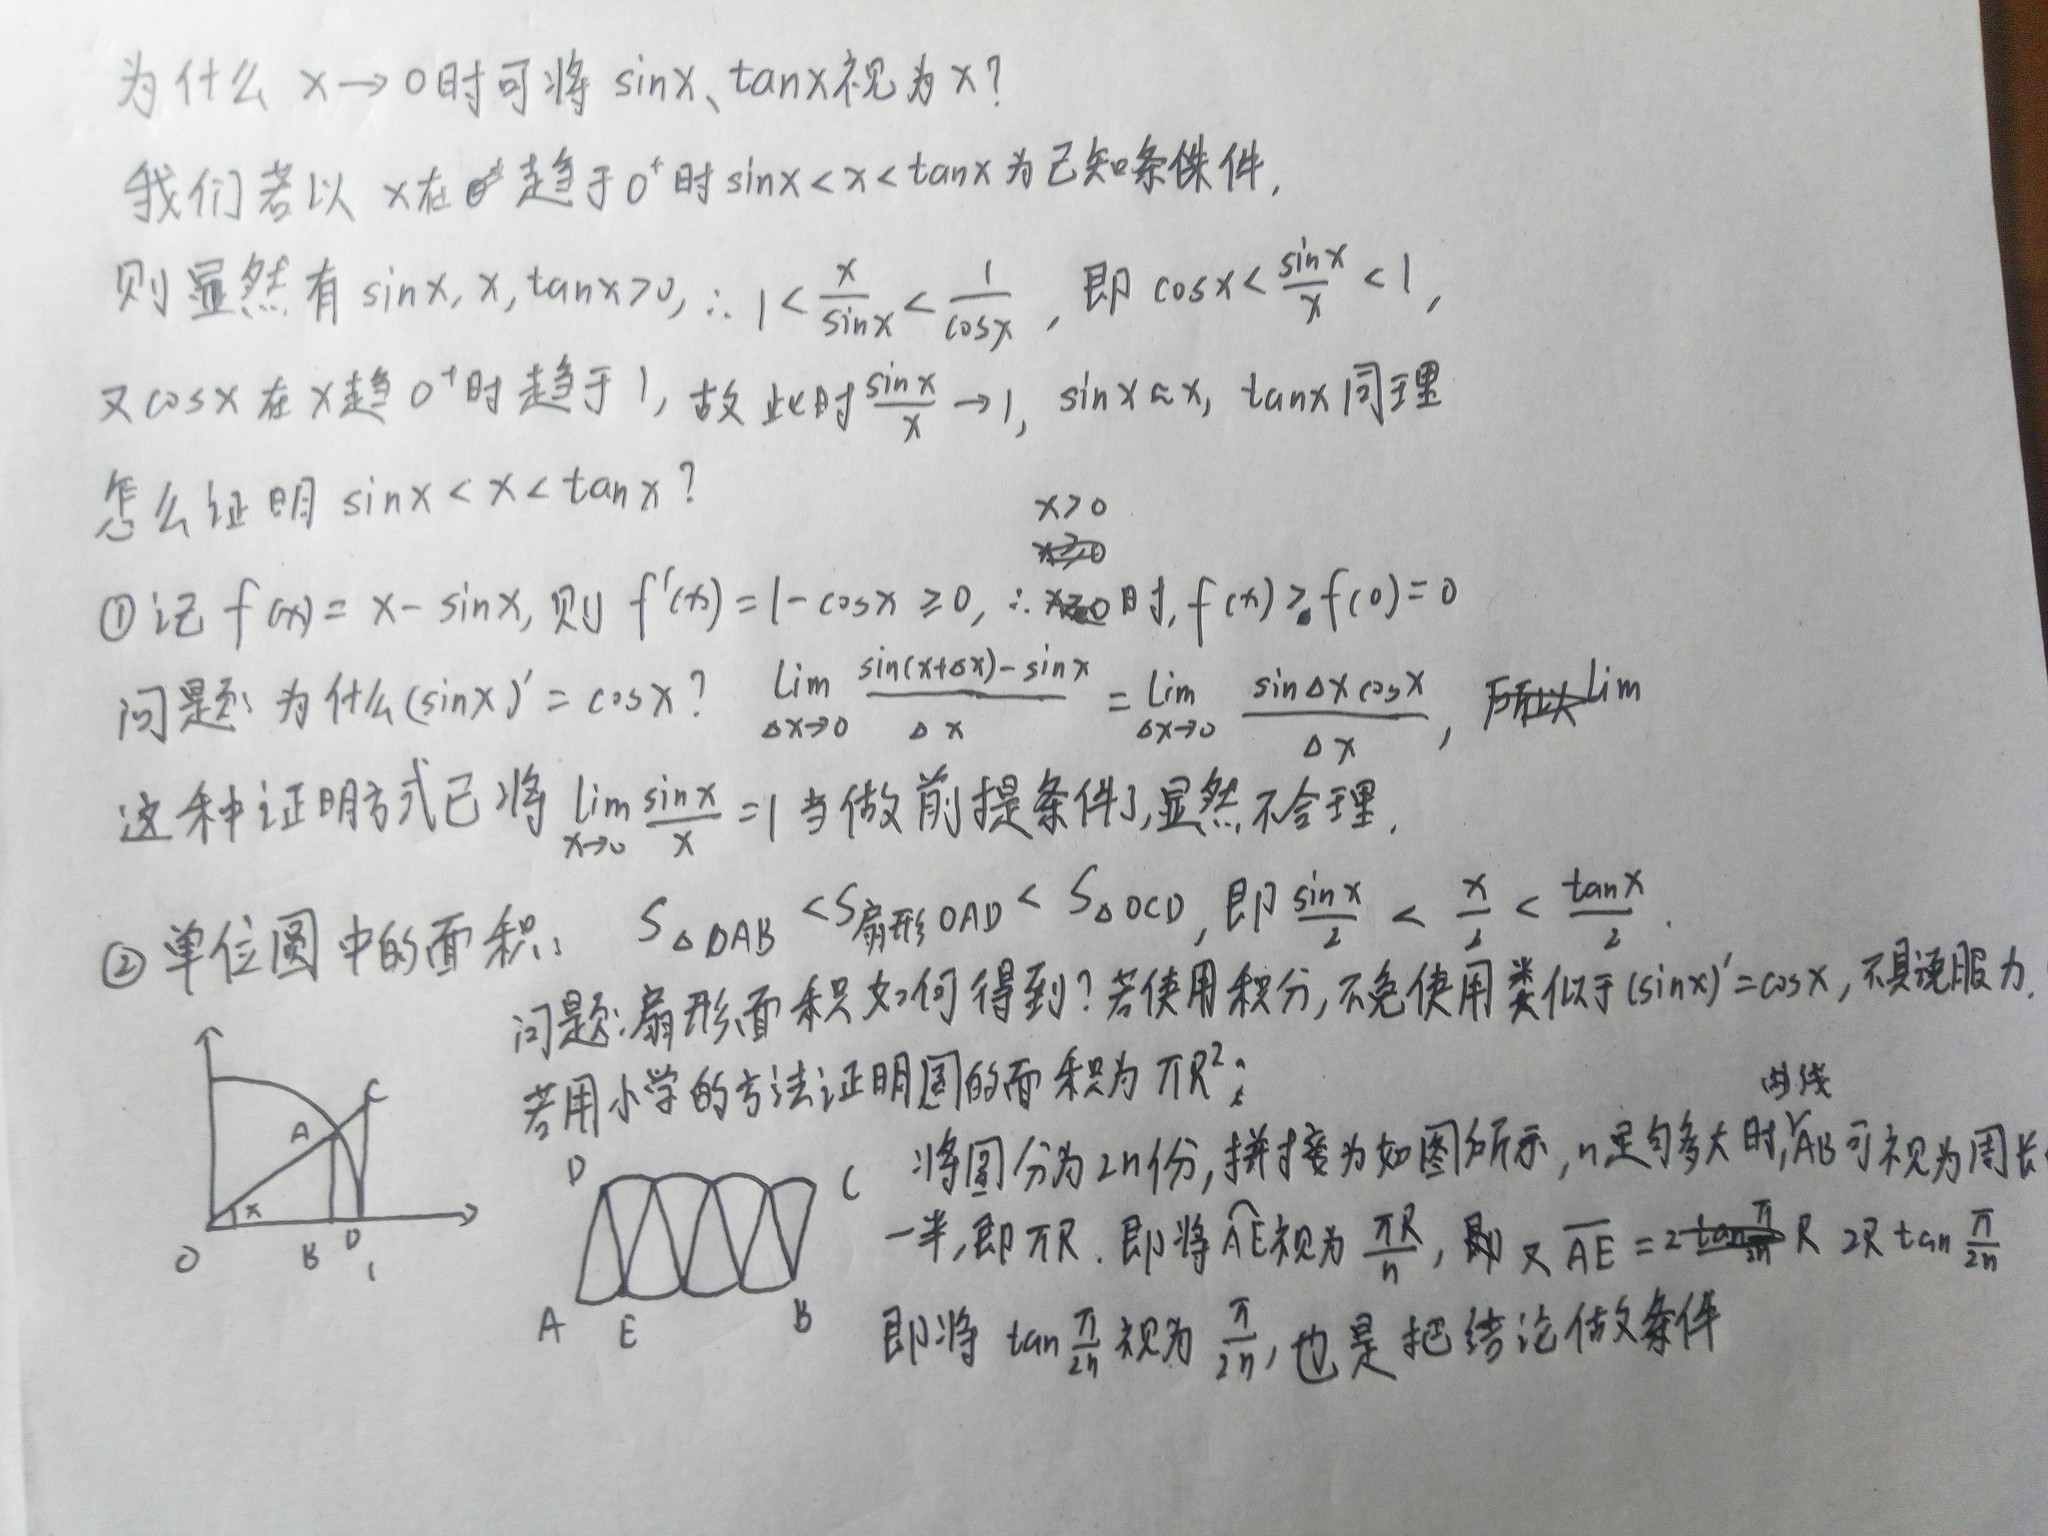 为什么 x→0时可将 sinx、tanx视为x?
我们若以 x在趋于0⁺时 sinx<x<tanx为已知条件,
则显然有 sinx, x, tanx>0, ∴ 1 < x/sinx < 1/cosx , 即 cosx < sinx/x < 1,
又cosx在x趋0⁺时趋于1, 故此时 sinx/x →1, sinx≈x, tanx同理
怎么证明 sinx<x<tanx?
x>0
①记 f(x)=x-sinx, 则 f'(x)=1-cosx≥0, ∴ 时, f(x)>f(0)=0
问题: 为什么(sinx)'=cosx? lim Δx→0 (sin(x+Δx)-sinx)/Δx = lim Δx→0 (sinΔx cosx)/Δx , lim
这种证明方式已将 lim x→0 sinx/x =1当做前提条件了,显然不合理.
②单位圆中的面积: S△OAB <S扇形OAD < S△OCD, 即 sinx/2 < x/2 < tanx/2 .
问题:扇形面积如何得到?若使用积分,不免使用类似于(sinx)'=cosx, 不具说服力.
若用小学的方法证明圆的面积为 πR²:
将圆分为2n份,拼接为如图所示,n足够多大时,曲线AB可视为周长
一半,即πR. 即将 A͡E视为 πR/n, 又 A̅E̅ = 2R tan π/2n
即将 tan π/2n 视为 π/2n, 也是把结论做条件
A
C
x
O
B
D
1
D
C
A
E
B